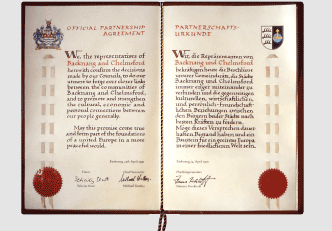 OFFICIAL PARTNERSHIP
AGREEMENT
We, the representatives of
Backnang and Chelmsford
herewith confirm the decisions
made by our Councils, to do our
utmost to forge ever closer links
between the communities of
Backnang and Chelmsford,
and to promote and strengthen
the cultural, economic and
personal connections between
our people generally.
May this promise come true
and form part of the foundations
of a united Europe in a more
peaceful world.
PARTNERSCHAFTS-
URKUNDE
Wir, die Repräsentanten von
Backnang und Chelmsford
bekräftigen heute die Beschlüsse
unserer Gemeinderäte, die Städte
Backnang und Chelmsford
immer enger miteinander zu
verbinden und die gegenseitigen
kulturellen, wirtschaftlichen,
und persönlich-freundschaft-
lichen Beziehungen zwischen
den Bürgern beider Städte nach
besten Kräften zu fördern.
Möge dieses Versprechen dauer-
haften Bestand haben und ein
Baustein für ein geeintes Europa
in einer friedlichen Welt sein.